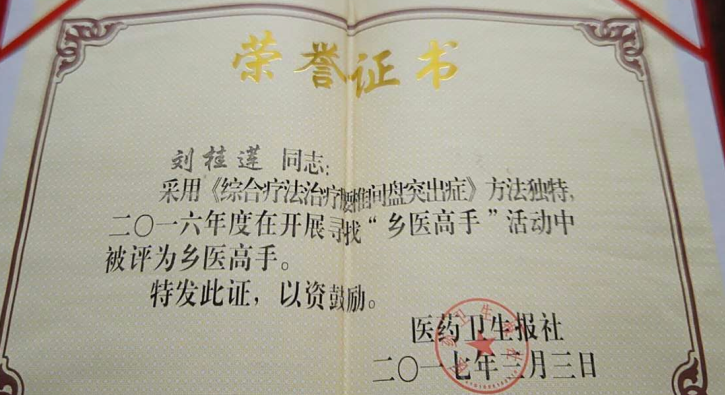 荣誉证书
刘桂莲 同志:
采用《综合疗法治疗腰椎间盘突出症》方法独特,
二〇一六年度在开展寻找“乡医高手”活动中
被评为乡医高手。
特发此证,以资鼓励。
医药卫生报社
二〇一七年三月三日